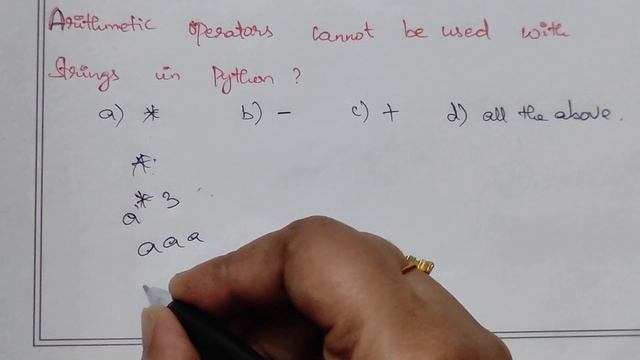 Arithmetic operators cannot be used with
Strings in Python ?
a) * b) - c) + d) all the above.
*
a * 3
a a a